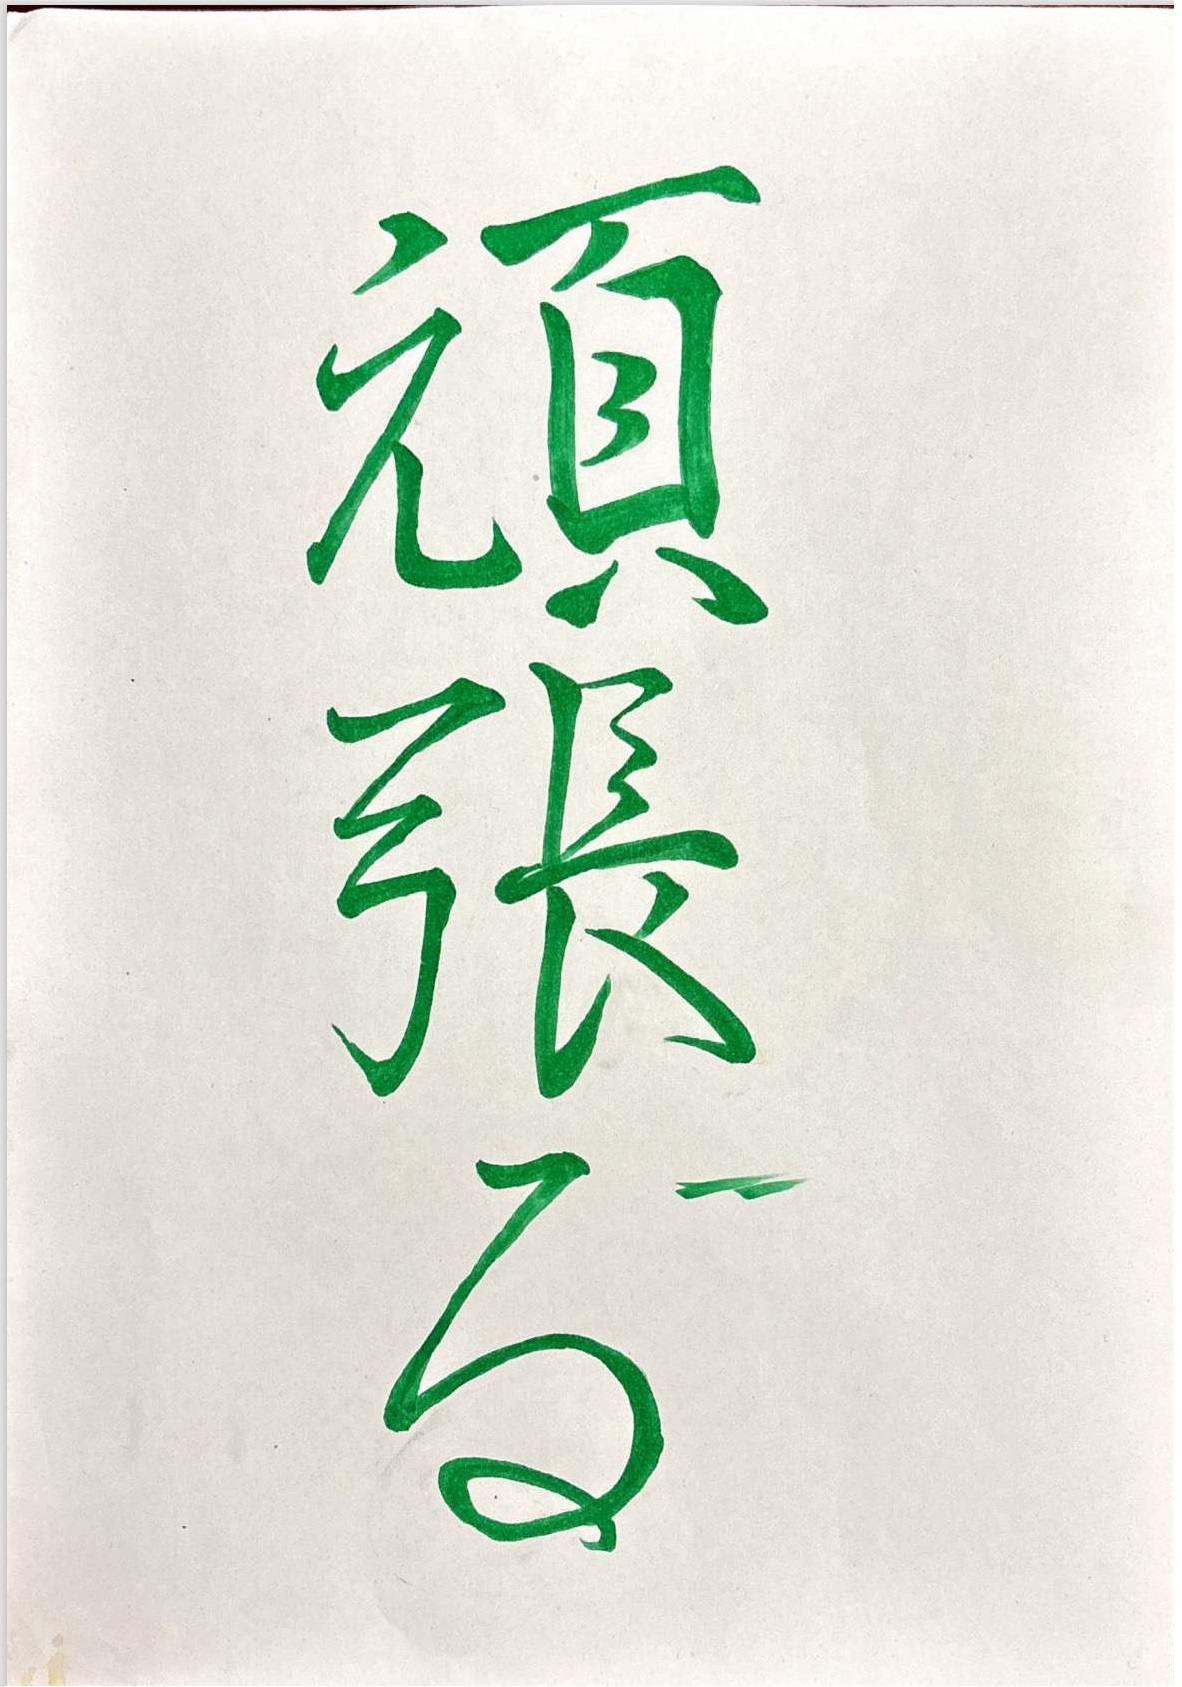 頑張る